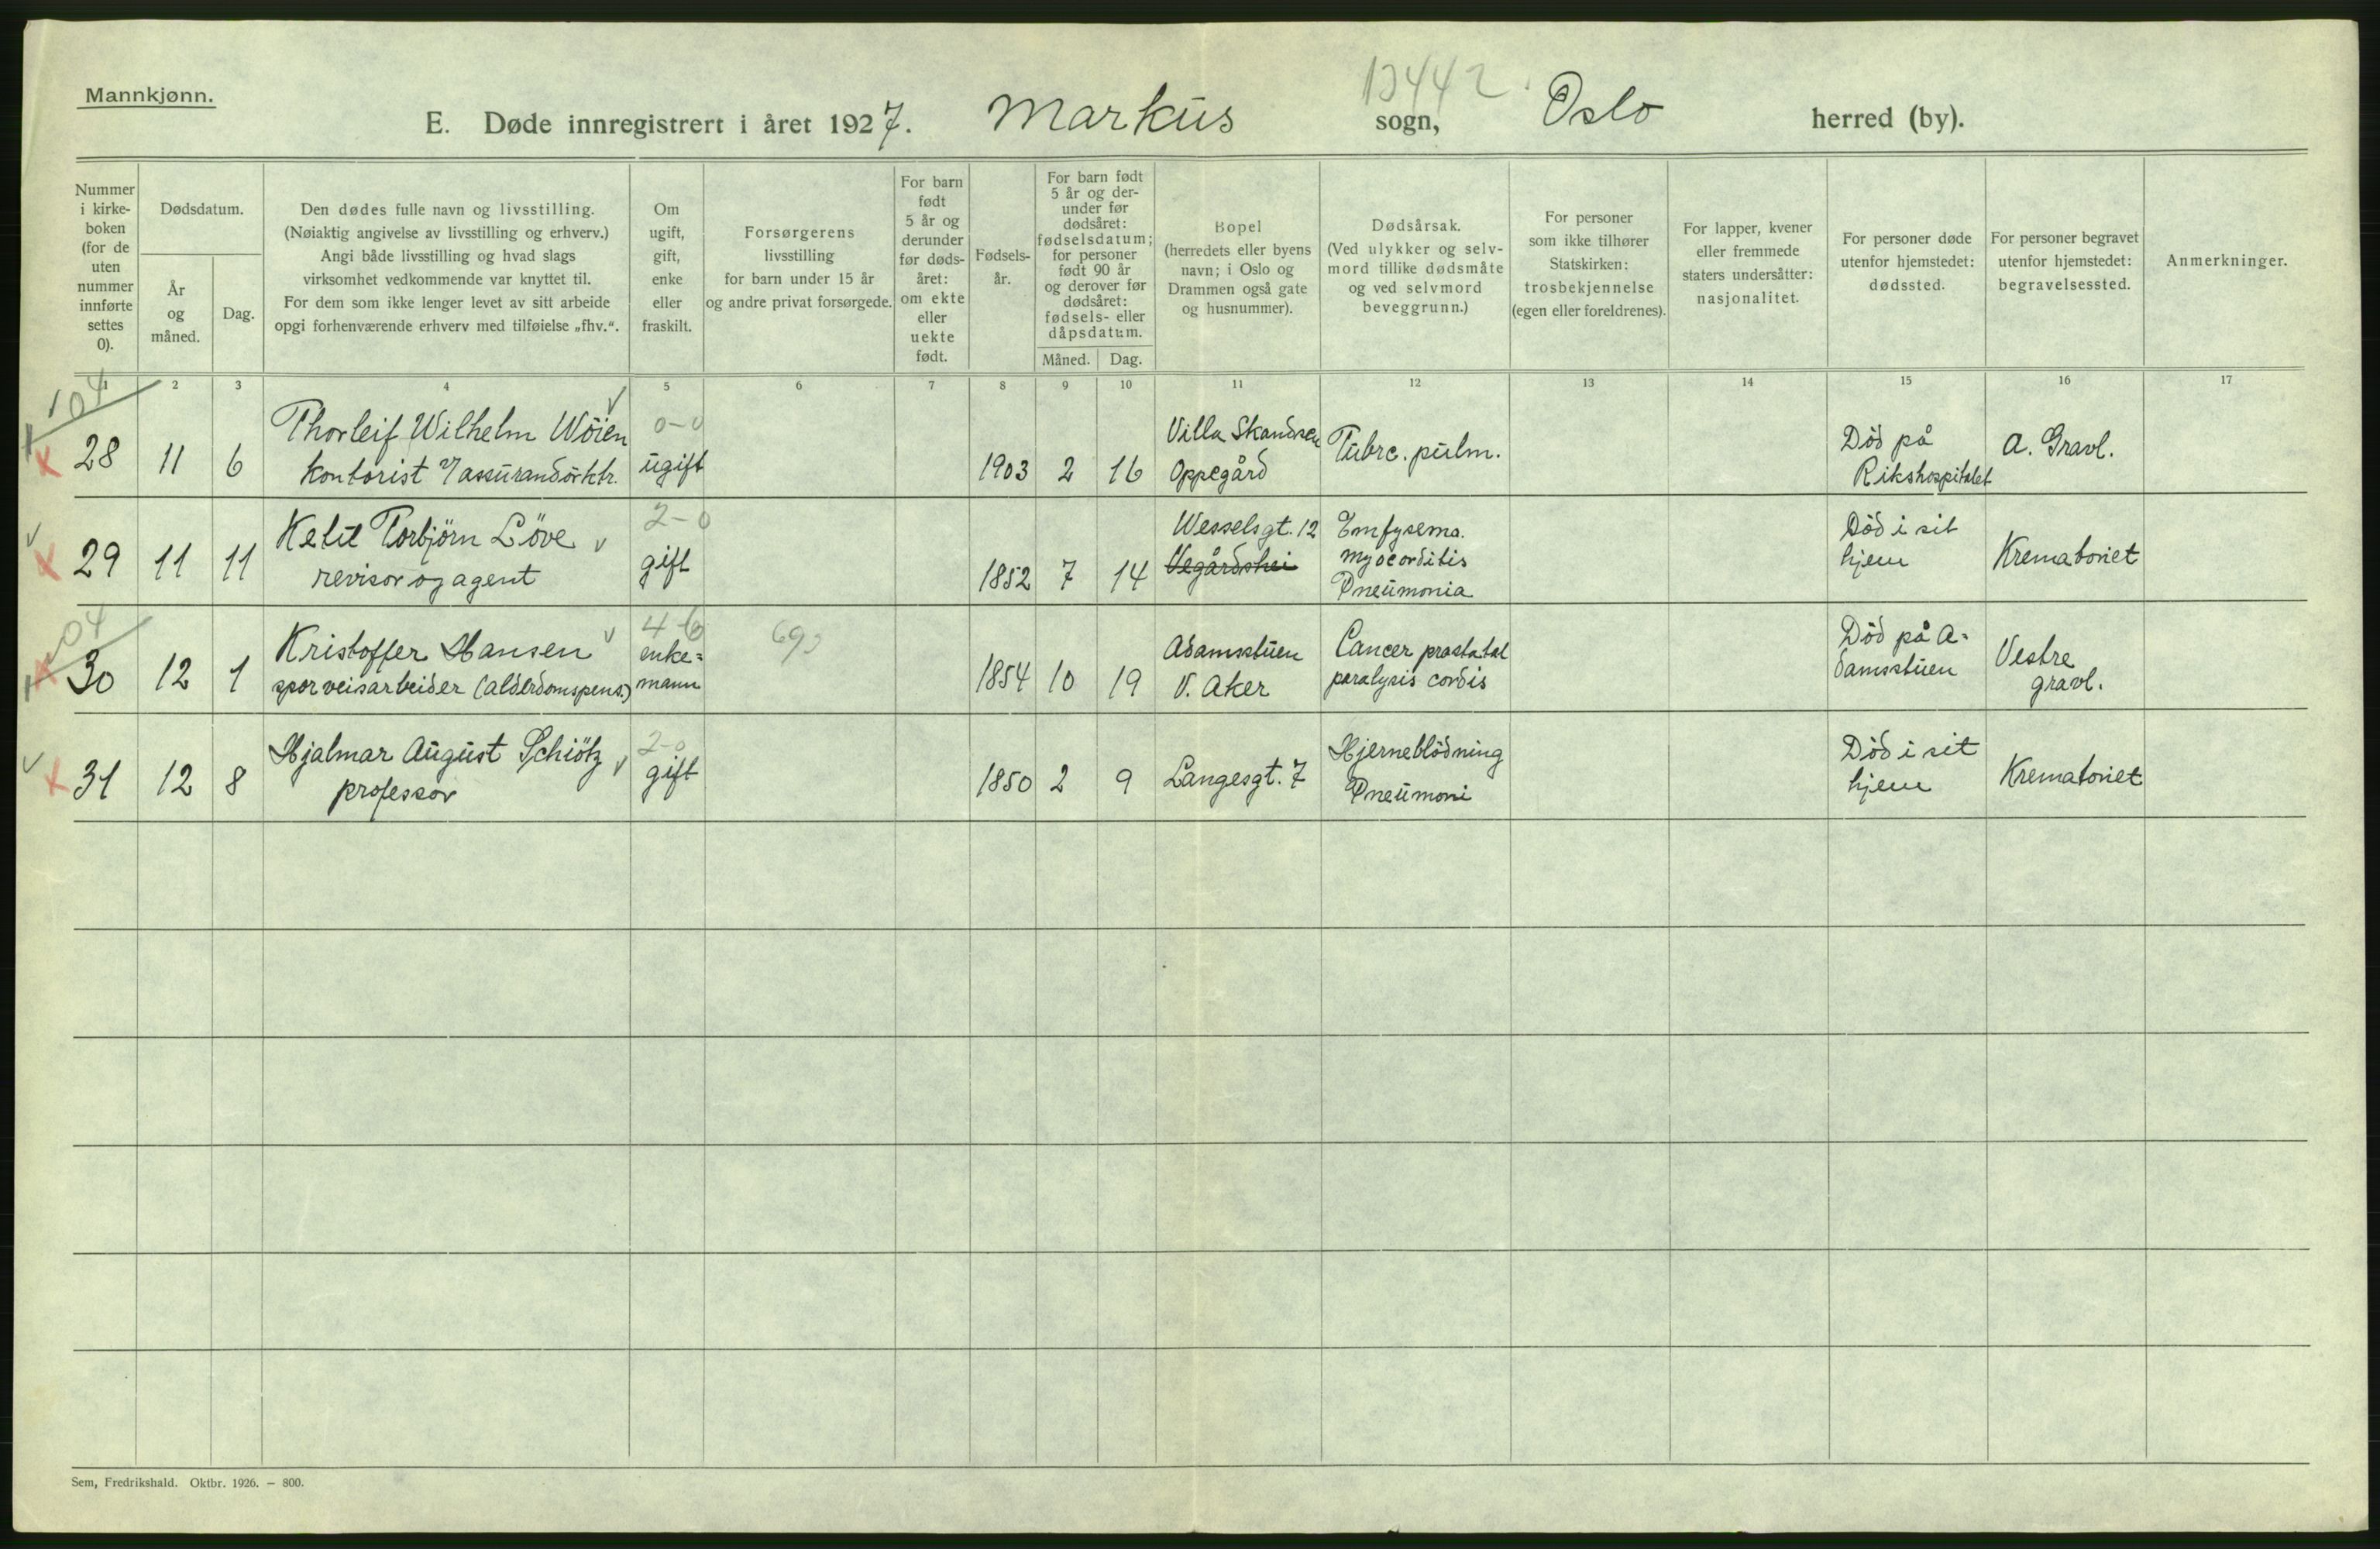 Mannkjønn.
13442.
E. Døde innregistrert i året 1927. Markus sogn, Oslo herred (by).
Nummer i kirke-boken (for de uten nummer innførte settes 0).
Dødsdatum.
År og måned.
Dag.
Den dødes fulle navn og livsstilling.
(Nøiaktig angivelse av livsstilling og erhverv.)
Angi både livsstilling og hvad slags
virksomhet vedkommende var knyttet til.
For dem som ikke lenger levet av sitt arbeide
opgi forhenværende erhverv med tilføielse „fhv.“.
Om ugift, gift, enke eller fraskilt.
Forsørgerens
livsstilling
for barn under 15 år
og andre privat forsørgede.
For barn født 5 år og derunder før døds-året: om ekte eller uekte født.
Fødsels-år.
For barn født 5 år og der-under før dødsåret: fødselsdatum; for personer født 90 år og derover før dødsåret: fødsels- eller dåpsdatum.
Måned. Dag.
Bopel
(herredets eller byens
navn; i Oslo og
Drammen også gate
og husnummer).
Dødsårsak.
(Ved ulykker og selv-
mord tillike dødsmåte
og ved selvmord
beveggrunn.)
For personer
som ikke tilhører
Statskirken:
trosbekjennelse
(egen eller foreldrenes).
For lapper, kvener
eller fremmede
staters undersåtter:
nasjonalitet.
For personer døde
utenfor hjemstedet:
dødssted.
For personer begravet
utenfor hjemstedet:
begravelsessted.
Anmerkninger.
1 2 3 4 5 6 7 8 9 10 11 12 13 14 15 16 17
104
28 11 6
Thorleif Wilhelm Wöien
kontorist v/ assurandörktr.
0-0
ugift
1903 2 16
Villa Skandsen
Oppegård
Tubrc. pulm.
Död på
Rikshospitalet
A. Gravl.
29 11 11
Ketil Torbjörn Löve
revisor og agent
2-0
gift
1852 7 14
Wesselsgt. 12
Vegårdshei
Emfysema.
Myocorditis
Pneumonia
Död i sit
hjem
Krematoriet
104
30 12 1
Kristoffer Hansen
sporveisarbeider (alderdomspens.)
4-6
enke=
mann
693
1854 10 19
Adamsstuen
V. Aker
Cancer prostatal
paralysis cordis
Död på A-
damsstuen
Vestre
gravl.
31 12 8
Hjalmar August Schiötz
professor
2-0
gift
1850 2 9
Langesgt. 7
Hjerneblödning
Pneumoni
Död i sit
hjem
Krematoriet
Sem, Fredrikshald. Oktbr. 1926. — 800.